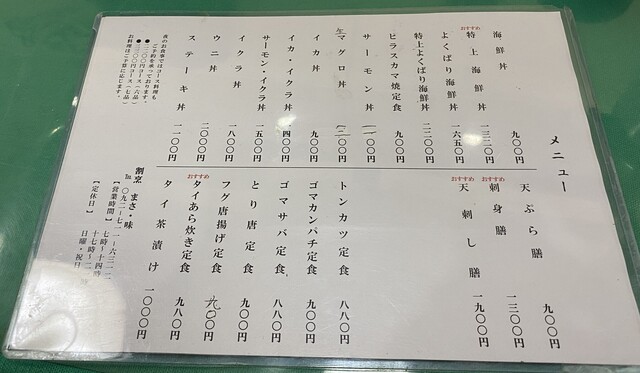 メニュー
海鮮丼 九〇〇円
おすすめ
特上海鮮丼 一三二〇円
よくばり海鮮丼 一六五〇円
特上よくばり海鮮丼 二二〇〇円
ヒラスカマ焼定食 九〇〇円
サーモン丼
生マグロ丼
イカ丼 九〇〇円
イカ・イクラ丼 一四〇〇円
サーモン・イクラ丼 一五〇〇円
イクラ丼 一八〇〇円
ウニ丼 二〇〇〇円
ステーキ丼 一一〇〇円
夜のお食事ではコース料理も
ご予約を承っております。
●二二〇〇円コース(六品)
●三三〇〇円コース(七品)
お料理はご予算に応じます。
天ぷら膳 九〇〇円
おすすめ
刺身膳 一三〇〇円
おすすめ
天刺し膳 一九〇〇円
トンカツ定食 八八〇円
ゴマカンパチ定食 九〇〇円
ゴマサバ定食 八八〇円
とり唐定食 九〇〇円
フグ唐揚げ定食 九〇〇円
おすすめ
タイあら炊き定食 九八〇円
タイ茶漬け 一〇〇〇円
割烹 まさ・味
℡ 〇九二-七二一-六三二
【営業時間】 七時~十四時
十七時~二
【定休日】 日曜・祝日